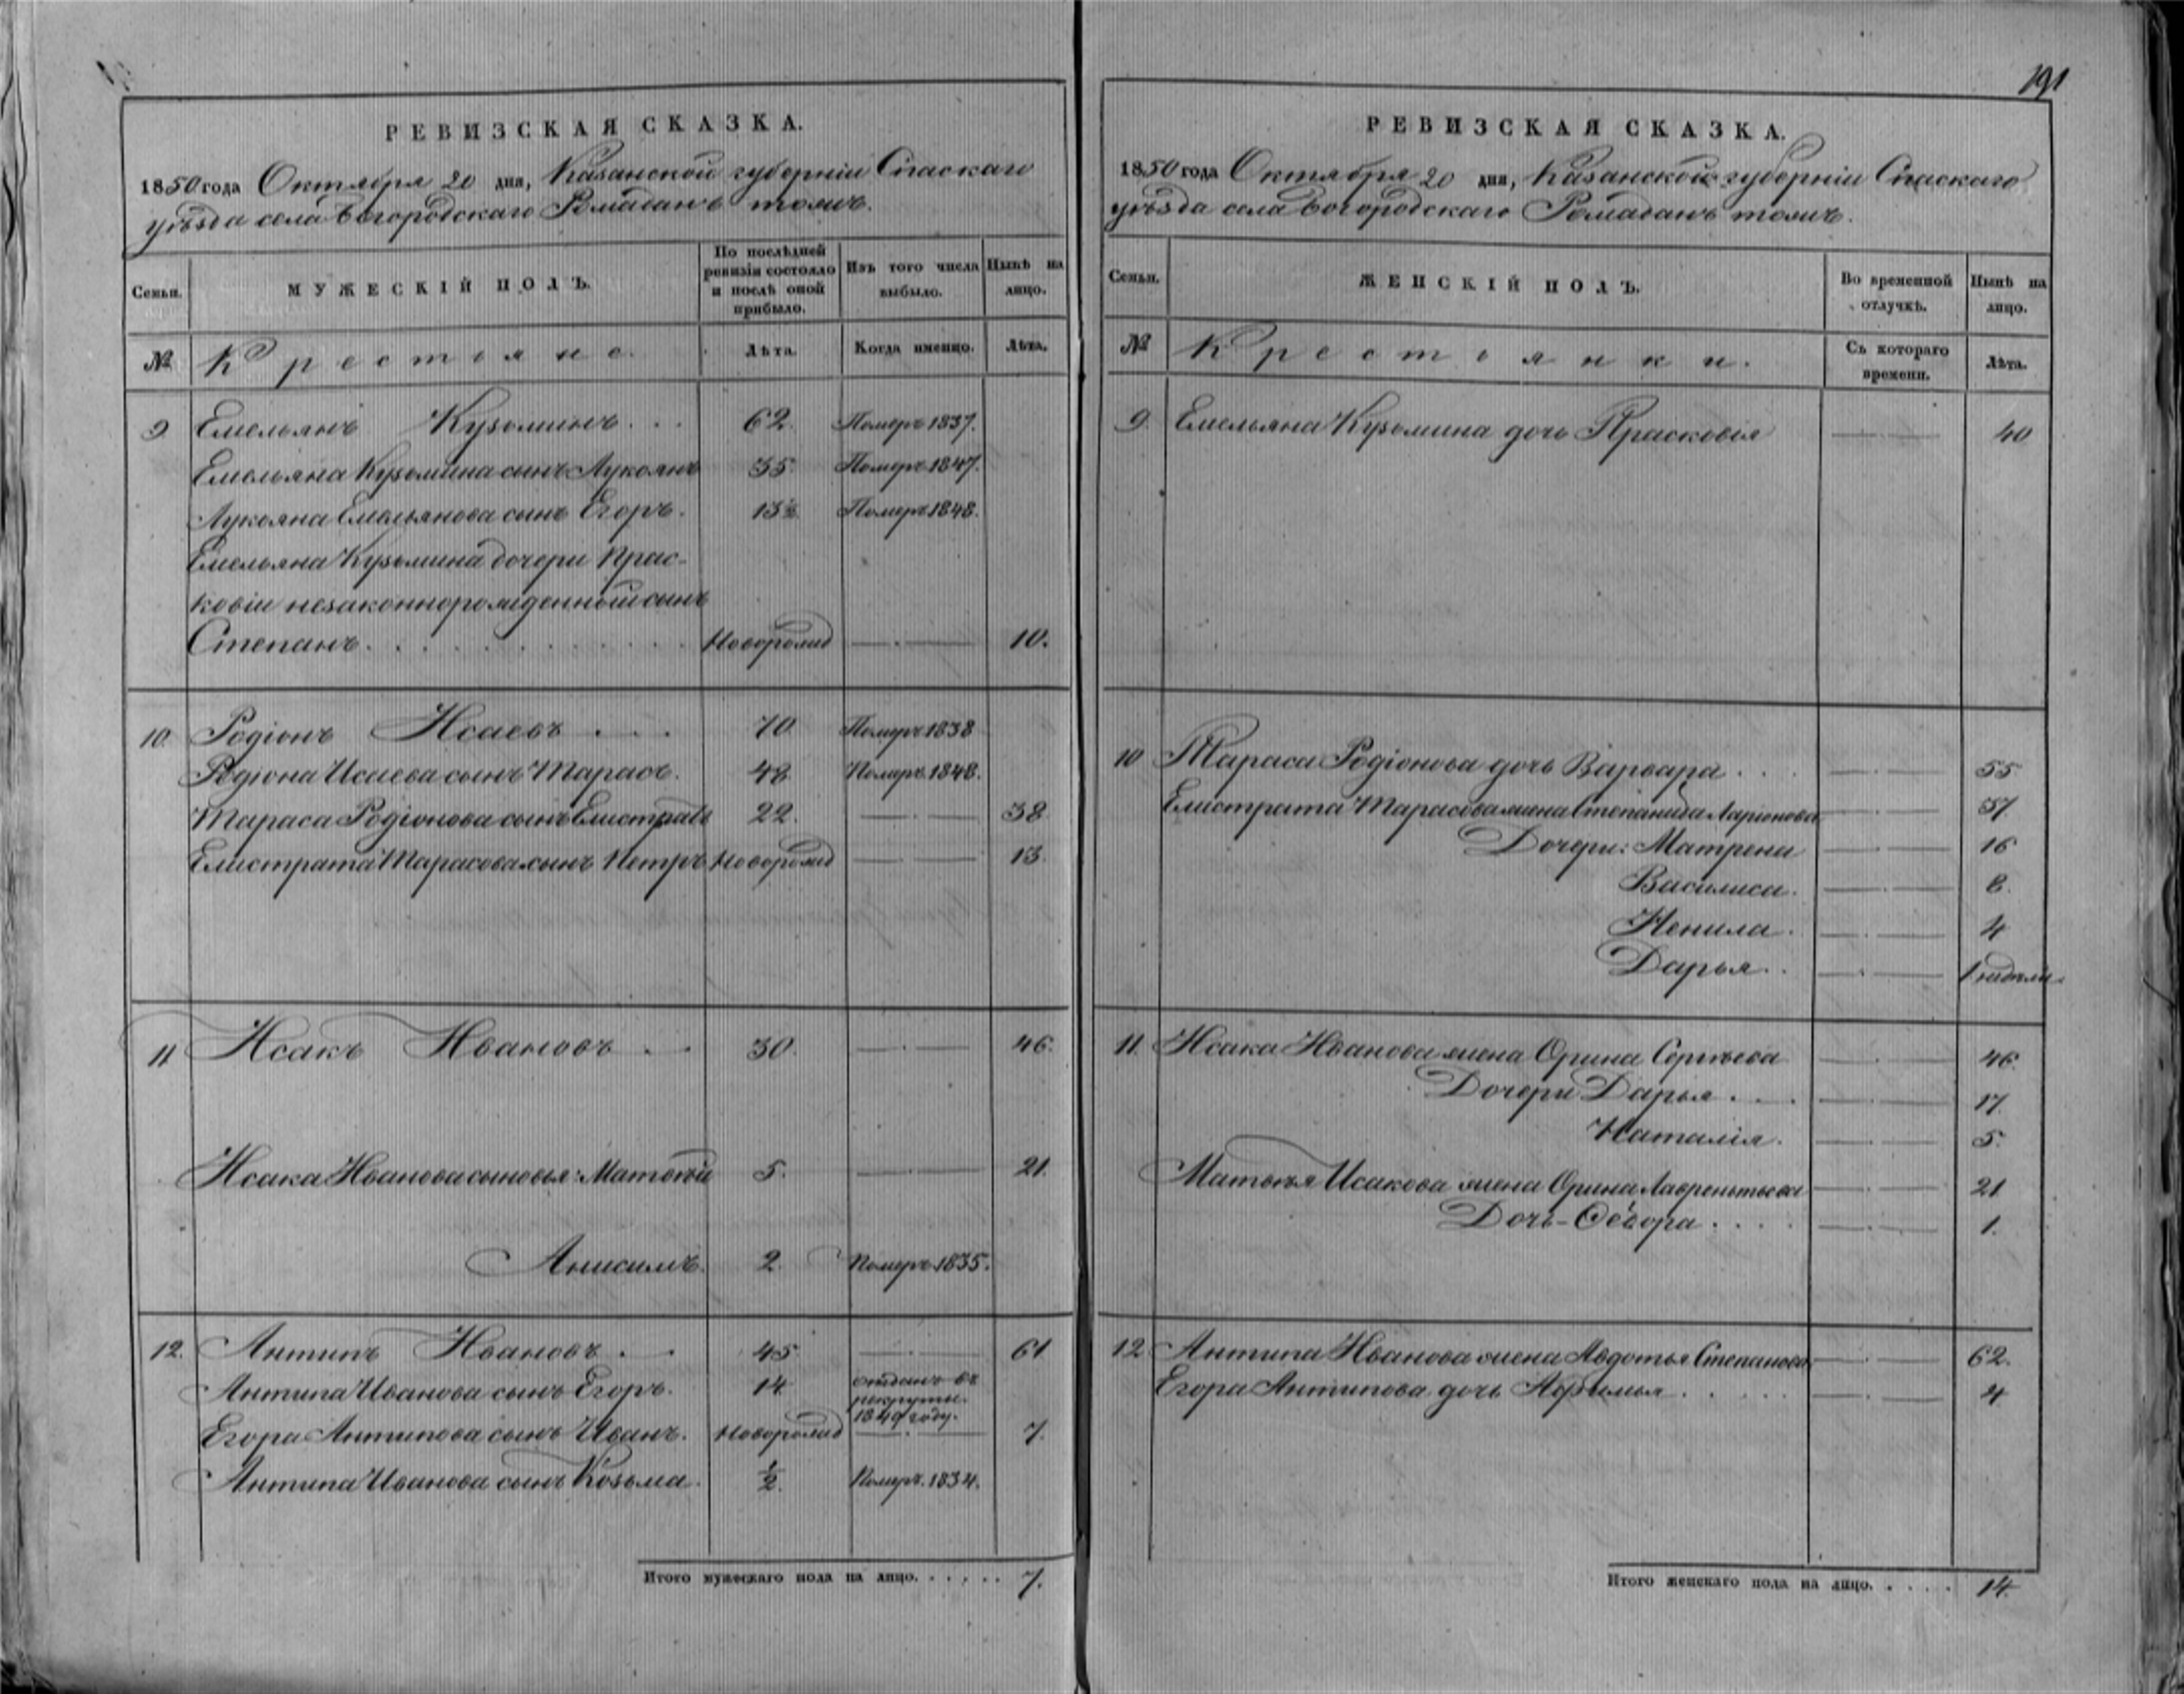 191
РЕВИЗСКАЯ СКАЗКА.
1850 года Октября 20 дня, Казанской губерніи Спаскаго
уѣзда села Богородскаго Ромаданъ тожъ.
Семьи.
МУЖЕСКІЙ ПОЛЪ.
По послѣдней ревизіи состояло и послѣ оной прибыло.
Изъ того числа выбыло.
Нынѣ на лицо.
№ Крестьяне. Лѣта. Когда именно. Лѣта.
9 Емельянъ Кузьминъ . . . 62. Померъ 1837.
Емельяна Кузьмина сынъ Лукоянъ 35 Померъ 1847.
Лукояна Емельянова сынъ Егоръ. 13½ Померъ 1848.
Емельяна Кузьмина дочери Прас-
ковіи незаконнорожденный сынъ
Степанъ. . . . . . . . . . Новорожд —.— 10.
10. Родіонъ Исаевъ . . . 70 Померъ 1838
Родіона Исаева сынъ Тарасъ. 48 Померъ 1848.
Тараса Родіонова сынъ Елистратъ 22. —.— 38
Елистрата Тарасова сынъ Петръ Новорожд —.— 13
11 Исакъ Ивановъ . . 30. —.— 46.
Исака Иванова сыновья: Матвѣй 5. —.— 21.
Анисимъ. 2. Померъ 1835.
12. Антипъ Ивановъ . . 45 —.— 61
Антипа Иванова сынъ Егоръ. 14 отданъ въ рекруты. 1849 году.
Егора Антипова сынъ Иванъ. Новорожд —.— 7.
Антипа Иванова сынъ Козьма. ½. Померъ. 1834.
Итого мужескаго пола на лицо. . . . . . 7.
РЕВИЗСКАЯ СКАЗКА.
1850 года Октября 20 дня, Казанской губерніи Спаскаго
уѣзда села Богородскаго Ромаданъ тожъ.
Семьи.
ЖЕНСКІЙ ПОЛЪ.
Во временной отлучкѣ.
Нынѣ на лицо.
№ Крестьянки. Съ котораго времени. Лѣта.
9. Емельяна Кузьмина дочь Прасковія —.— 40
10 Тараса Родіонова дочь Варвара . . . —.— 55
Елистрата Тарасова жена Степанида Ларіонова —.— 37.
Дочери: Матрена —.— 16
Василиса. —.— 8.
Ненила. —.— 4
Дарья. . —.— 1 недѣли
11. Исака Иванова жена Орина Сергѣева —.— 46.
Дочери Дарья . . . —.— 17.
Наталія. —.— 5.
Матвѣя Исакова жена Орина Лаврентьева —.— 21
Дочь - Ѳедора . . . . —.— 1.
12 Антипа Иванова жена Авдотья Степанова —.— 62.
Егора Антипова дочь Афимья . . . . . —.— 4
Итого женскаго пола на лицо. . . . . 14.